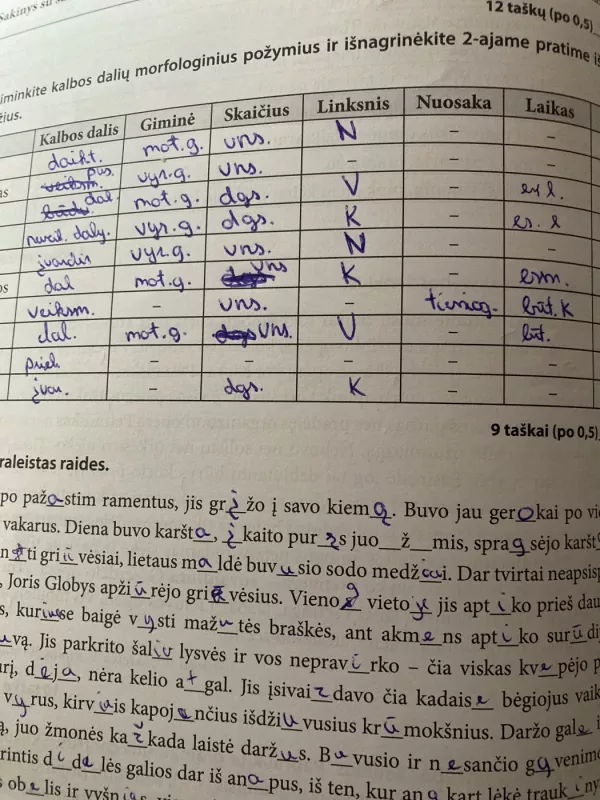 Sakinys su
12 taškų (po 0,5)
iminkite kalbos dalių morfologinius požymius ir išnagrinėkite 2-ajame pratime iš
žius.
Kalbos dalis Giminė Skaičius Linksnis Nuosaka Laikas
daikt. mot.g. vns. N – –
pus. vyr.g. vns. – –
dal. mot.g. dgs. V – es l.
vyr.g. dgs. K – es. l
įvardis vyr.g. vns. N – –
dal mot.g. vns K – esm.
veiksm. – vns. – tiesiog. būt. K
dal. mot.g. vns. V – būt.
priel. – – – – –
įvar. – dgs. K – –
9 taškai (po 0,5)
raleistas raides.
po pažastim ramentus, jis grįžo į savo kiemą. Buvo jau gerokai po vi
vakarus. Diena buvo karšta, įkaito pur s juo__ž__mis, spragsėjo karšt
ti griūvėsiai, lietaus maldė buvusio sodo medžiai. Dar tvirtai neapsisp
, Joris Globys apžiūrėjo gri vėsius. Vieno vietoje jis aptiko prieš dau
s, kuriuose baigė vysti mažutės braškės, ant akmens aptiko surūdi
uvą. Jis parkrito šaliu lysvės ir vos nepravirko – čia viskas kvepėjo p
urį, deja, nėra kelio atgal. Jis įsivaizdavo čia kadaise bėgiojus vaik
vyrus, kirviais kapojenčius išdžiuvusius krūmokšnius. Daržo gale i
ą, juo žmonės kažkada laistė daržus. Buvusio ir nesančio gyvenime
rintis didelės galios dar iš anapus, iš ten, kur aną kart lėkė traukiny
s obelis ir vyšnias, vis